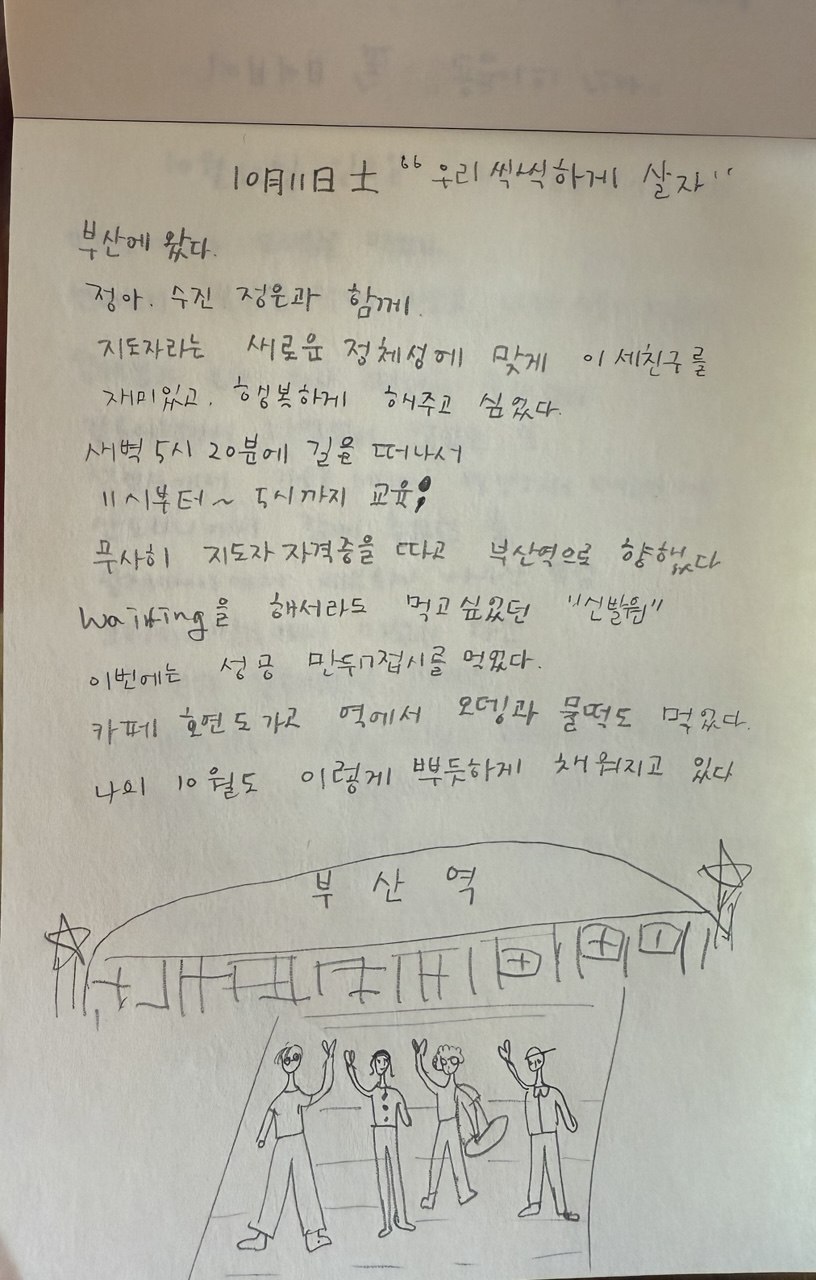 10月11日 土 "우리 씩씩하게 살자"
부산에 왔다.
정아. 수진 정은과 함께.
지도자라는 새로운 정체성에 맞게 이 세친구를
재미있고. 행복하게 해주고 싶었다.
새벽 5시 20분에 길을 떠나서
11시부터~ 5시까지 교육;
무사히 지도자 자격증을 따고 부산역으로 향했다
waitting을 해서라도 먹고싶었던 "신발원"
이번에는 성공 만두 접시를 먹었다.
카페 호연도 가고 역에서 오뎅과 물떡도 먹었다.
나의 10월도 이렇게 뿌듯하게 채워지고 있다
부산역